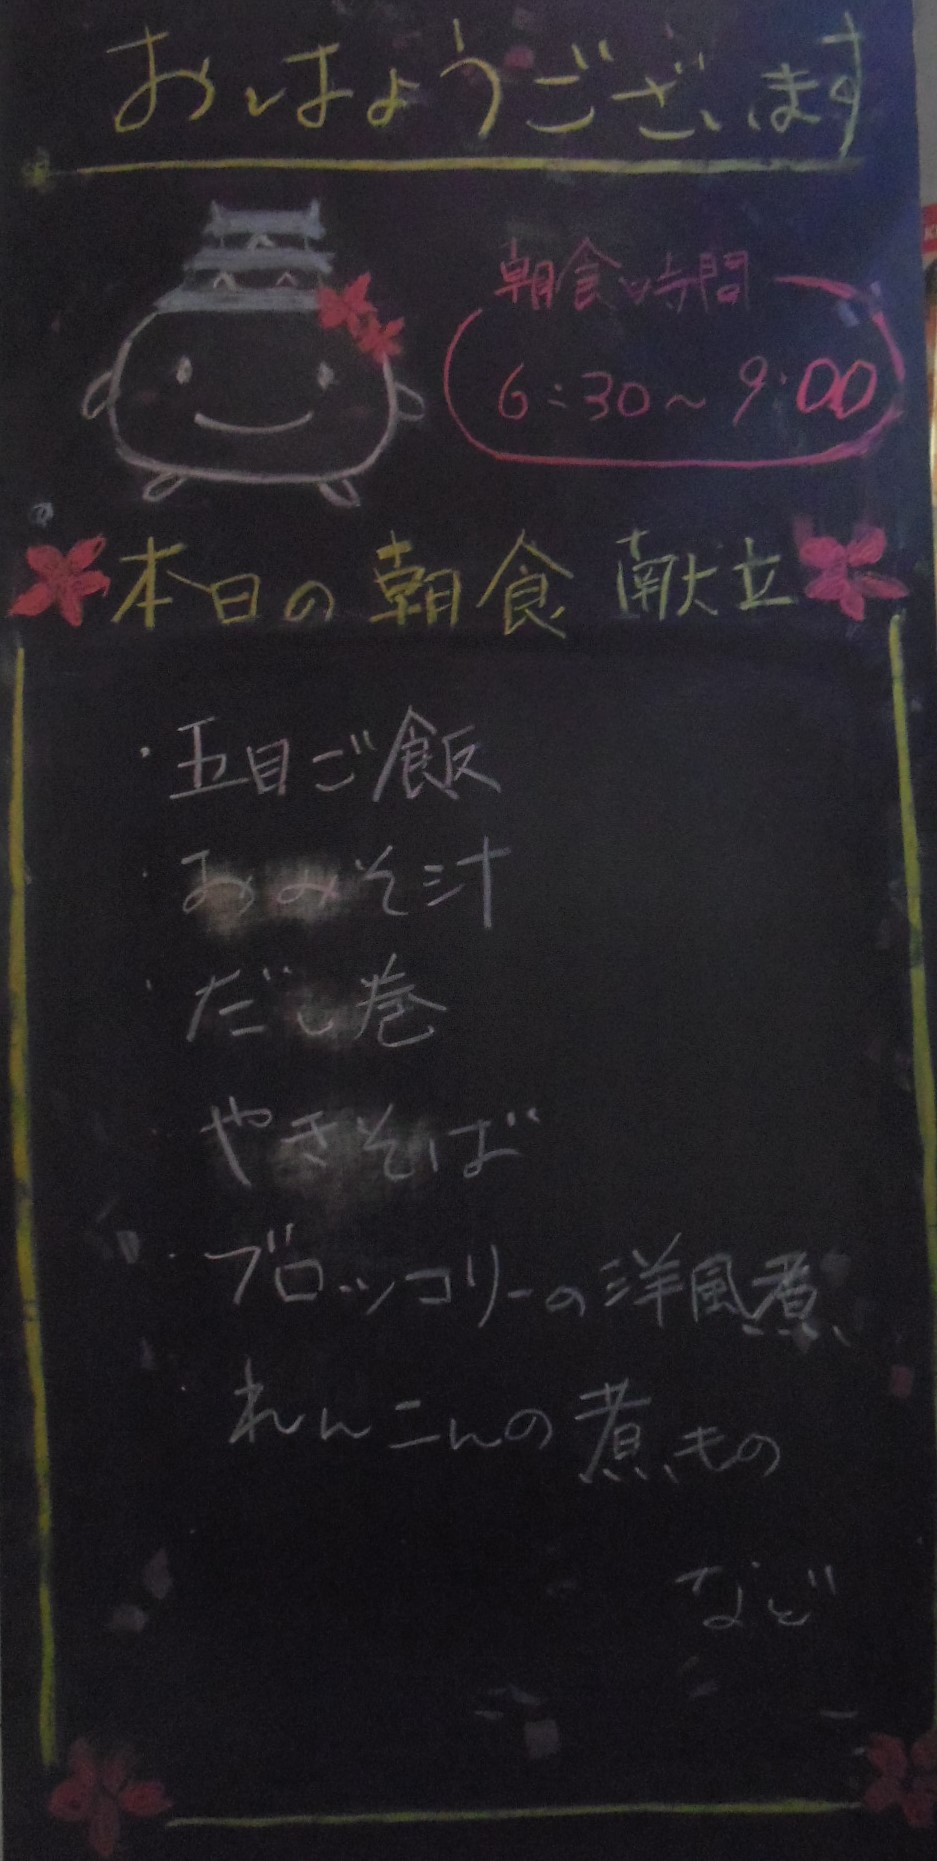 おはようございます
朝食時間
6:30～9:00
本日の朝食 献立
・五目ご飯
・おみそ汁
・だし巻
・やきそば
・ブロッコリーの洋風煮
・れんこんの煮もの
など